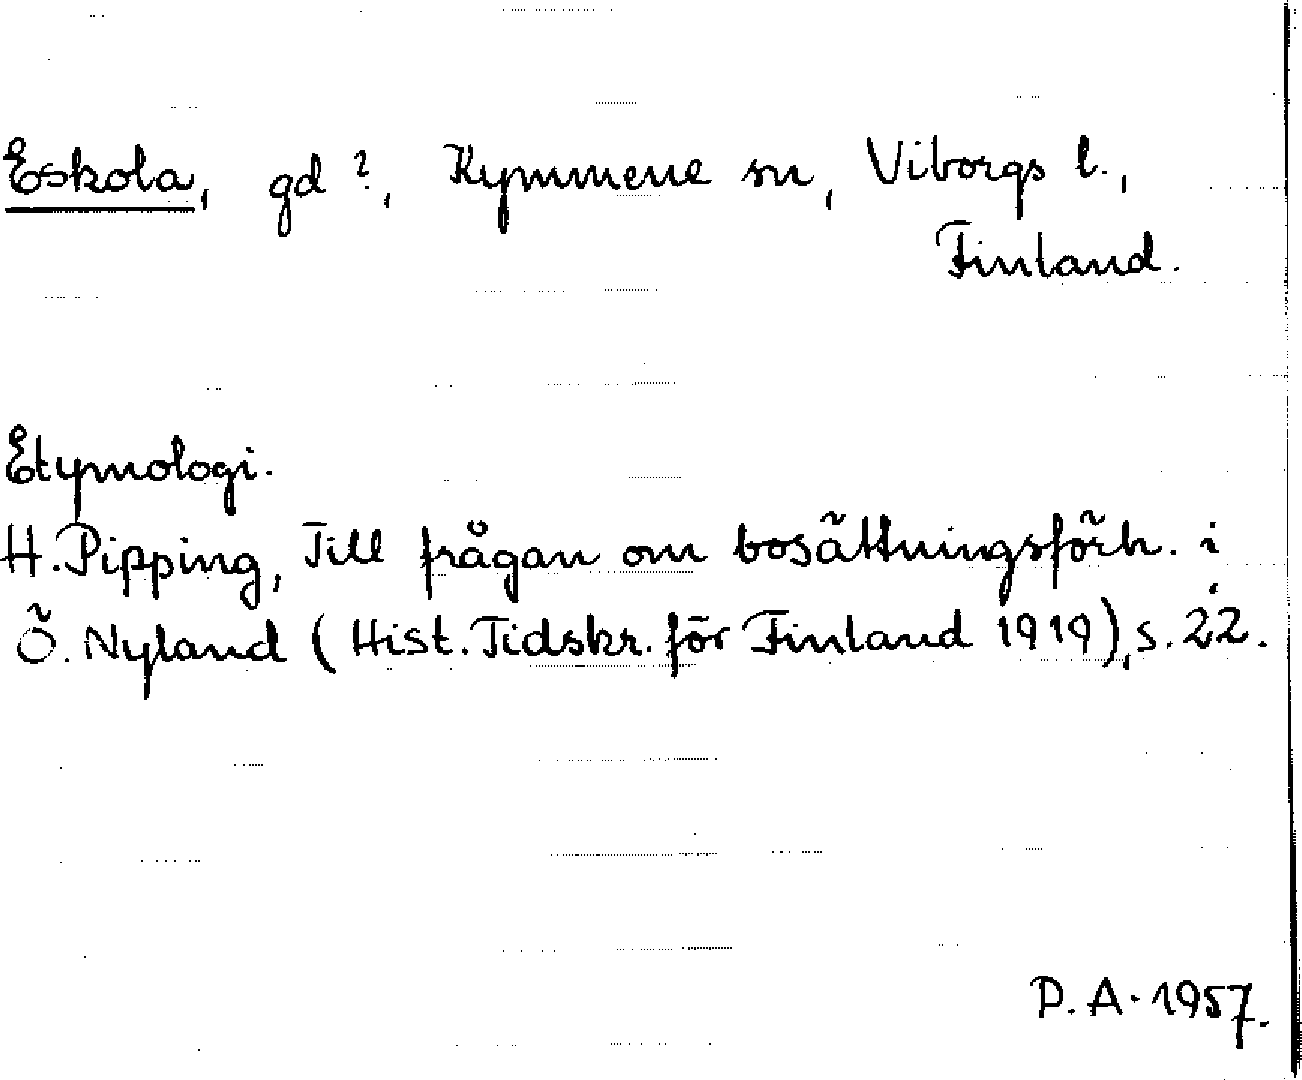 Eskola, gd ?, Kymmene sn, Viborgs l.,
Finland.
Etymologi.
H. Pipping, Till frågan om bosättningsförh. i
Ö. Nyland (Hist. Tidskr. för Finland 1919), s. 22.
P. A. 1957.